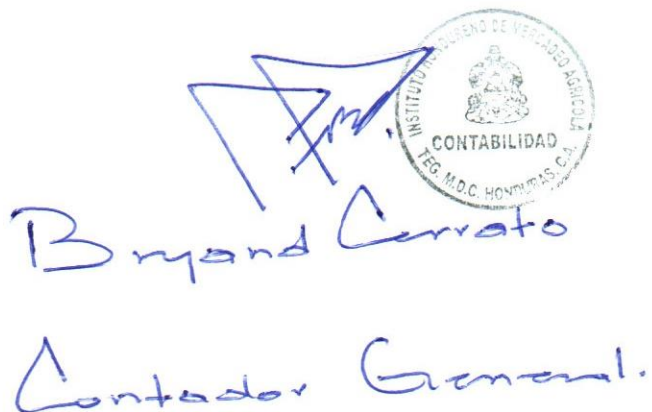 INSTITUTO HONDUREÑO DE MERCADEO AGRICOLA
CONTABILIDAD
TEG. M.D.C. HONDURAS, C.A.
Bryand Cerrato
Contador General.